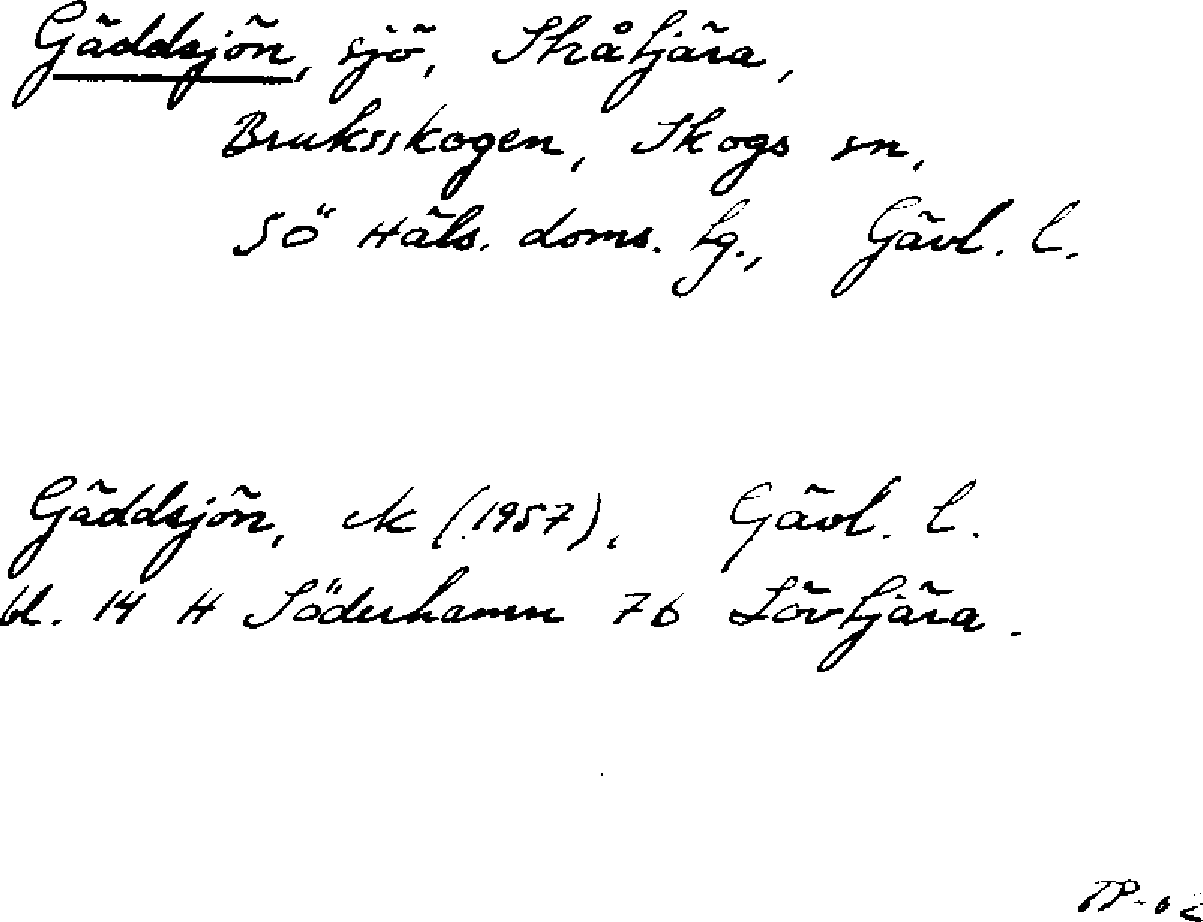 Gäddsjön, sjö, Stråtjära,
Bruksskogen, Skogs sn,
Sö Häls. doms. tg., Gävl. l.
Gäddsjön, ek (1957), Gävl. l.
bl. 14 H Söderhamn 7b Lövtjära.